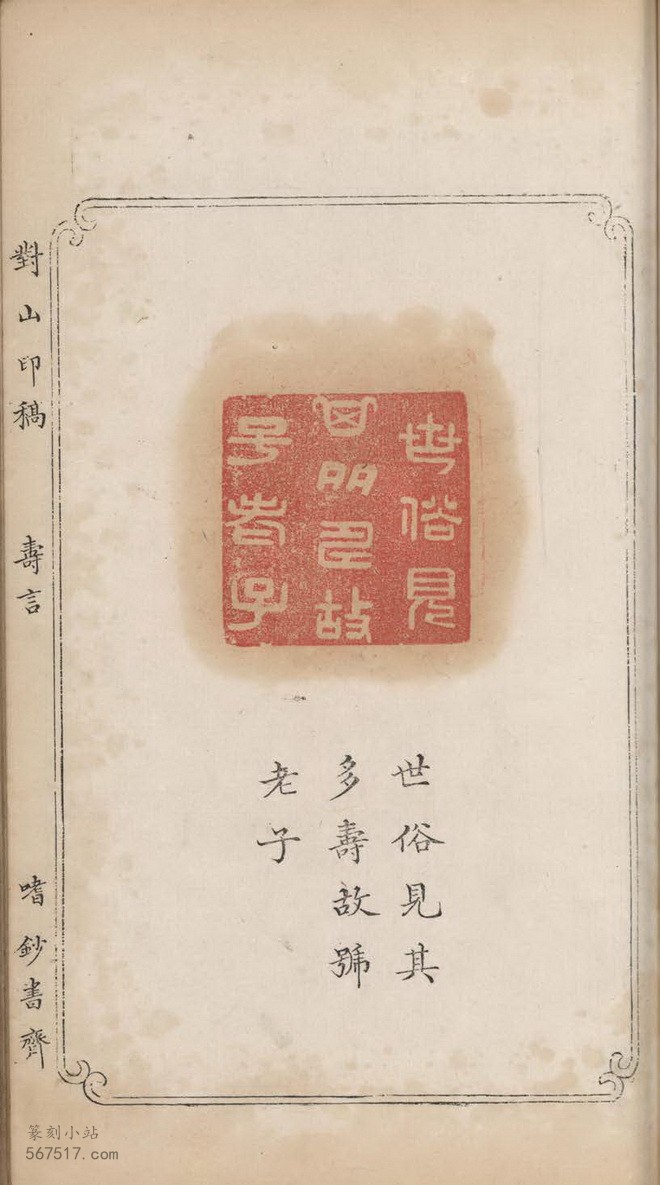 世俗見
其多壽故
号老子
世俗見其
多壽故號
老子
對山印稿 壽言 嗜鈔書齋
篆刻小站
567517.com